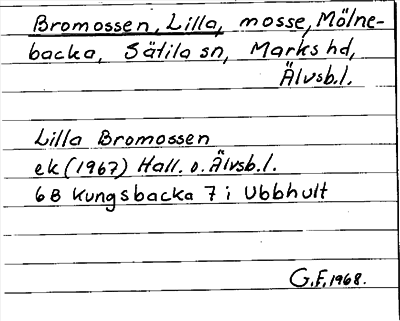 Bromossen, Lilla, mosse, Mölne-
backa, Sätila sn, Marks hd,
Älvsb.l.
Lilla Bromossen
ek (1967) Hall. o. Älvsb.l.
6B Kungsbacka 7 i Ubbhult
G.F. 1968.